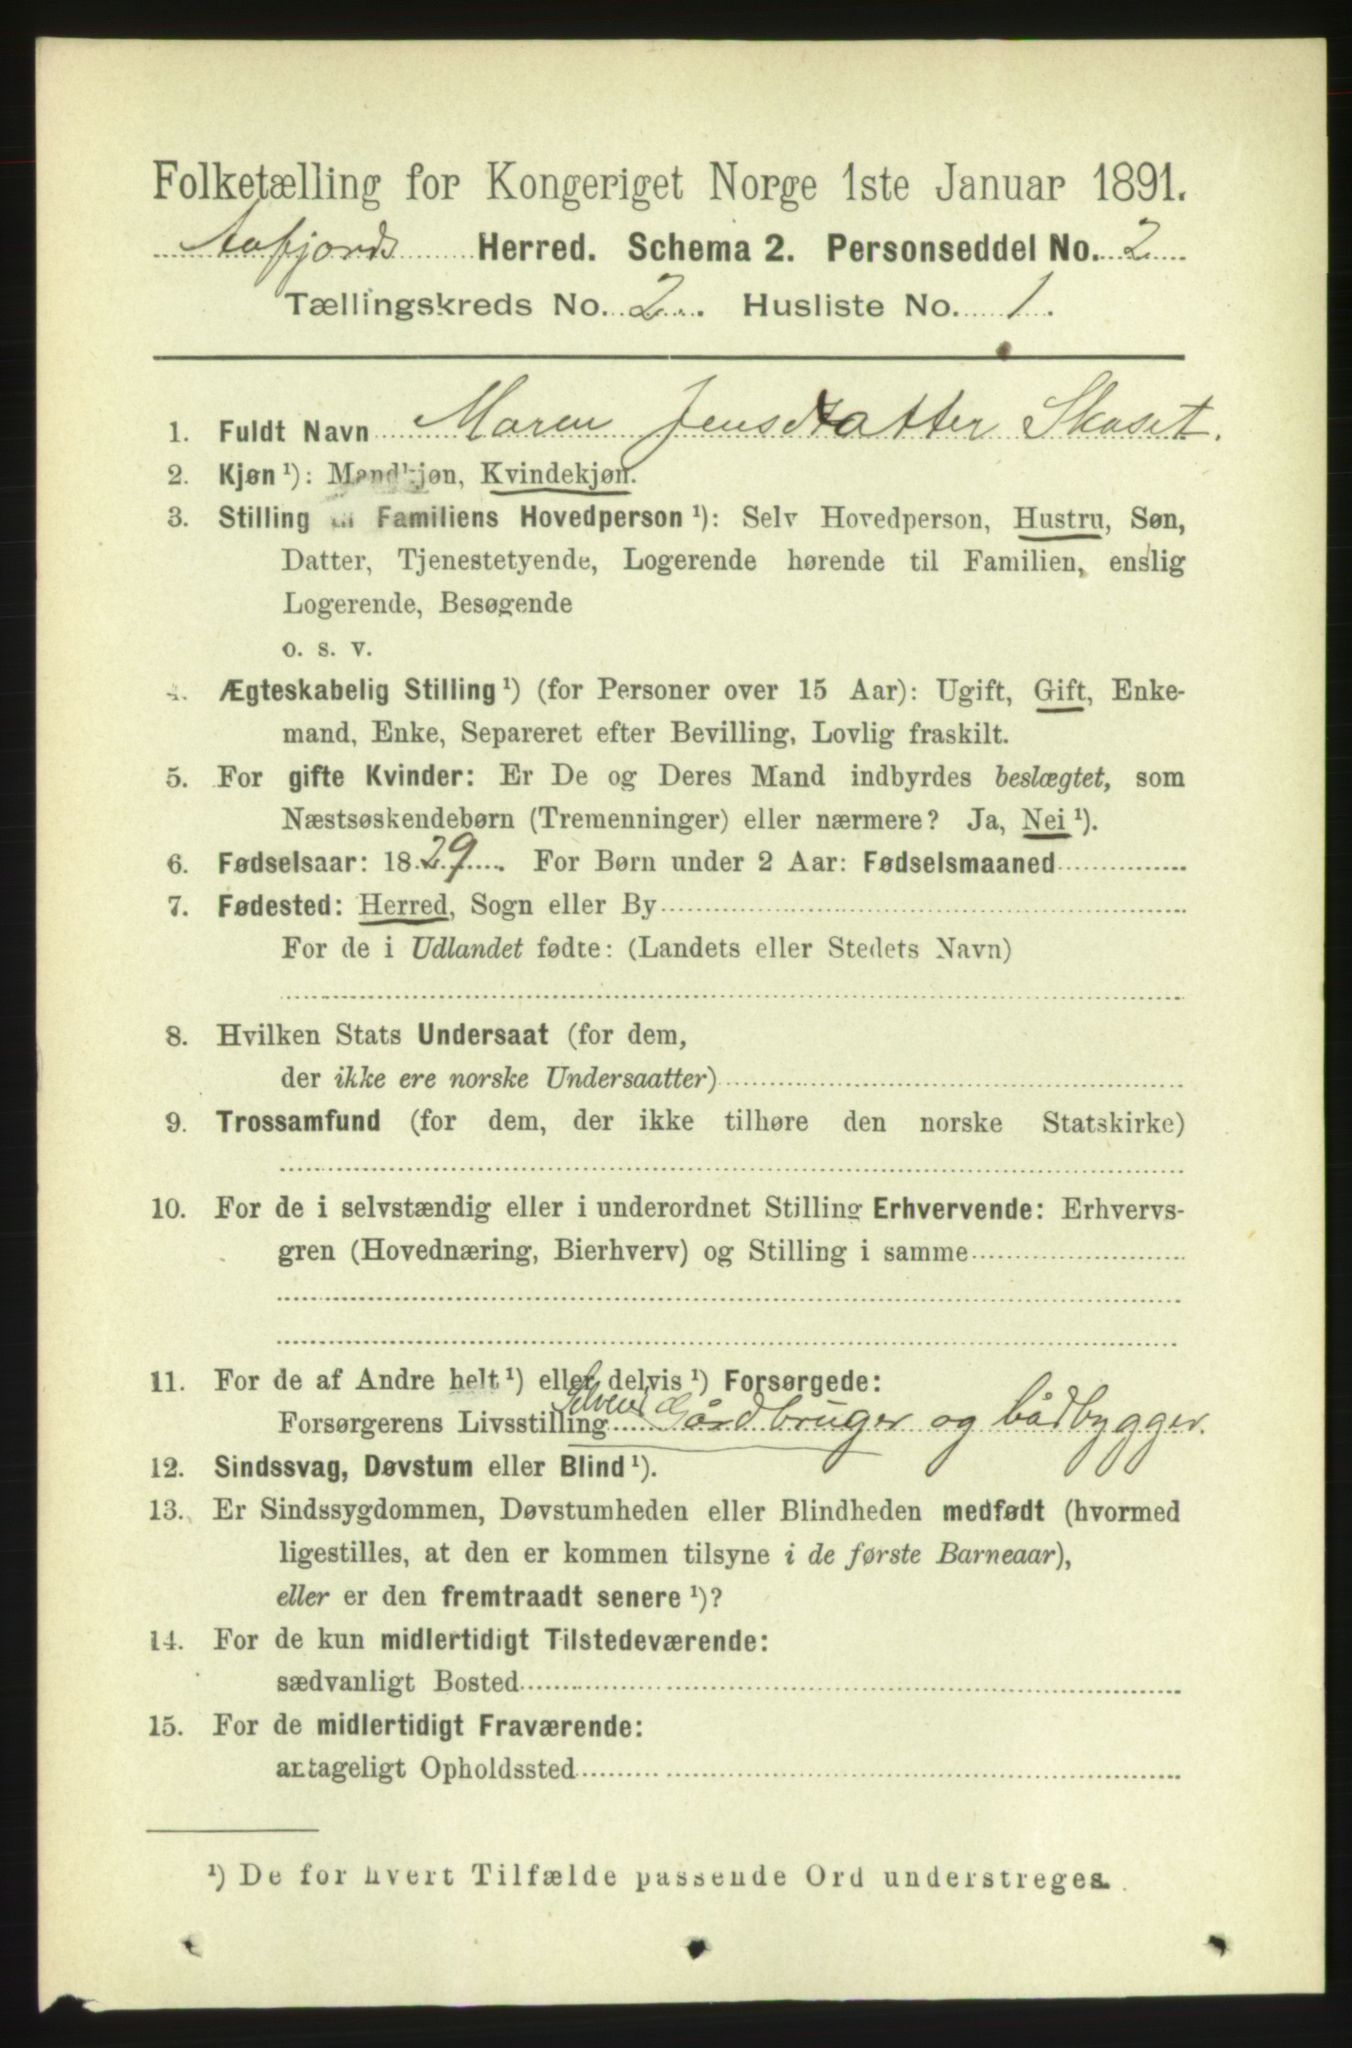 Folketælling for Kongeriget Norge 1ste Januar 1891.
Aafjords Herred. Schema 2. Personseddel No. 2
Tællingskreds No. 2. Husliste No. 1.
1. Fuldt Navn Maren Jensdatter Skaset.
2. Kjøn¹): Mandkjøn, Kvindekjøn.
3. Stilling til Familiens Hovedperson¹): Selv Hovedperson, Hustru, Søn,
Datter, Tjenestetyende, Logerende hørende til Familien, enslig
Logerende, Besøgende
o. s. v.
4. Ægteskabelig Stilling¹) (for Personer over 15 Aar): Ugift, Gift, Enke-
mand, Enke, Separeret efter Bevilling, Lovlig fraskilt.
5. For gifte Kvinder: Er De og Deres Mand indbyrdes beslægtet, som
Næstsøskendebørn (Tremenninger) eller nærmere? Ja, Nei¹).
6. Fødselsaar: 1829. For Børn under 2 Aar: Fødselsmaaned
7. Fødested: Herred, Sogn eller By
For de i Udlandet fødte: (Landets eller Stedets Navn)
8. Hvilken Stats Undersaat (for dem,
der ikke ere norske Undersaatter)
9. Trossamfund (for dem, der ikke tilhøre den norske Statskirke)
10. For de i selvstændig eller i underordnet Stilling Erhvervende: Erhvervs-
gren (Hovednæring, Bierhverv) og Stilling i samme
11. For de af Andre helt¹) eller delvis¹) Forsørgede:
Forsørgerens Livsstilling Selveier Gårdbruger og bådbygger.
12. Sindssvag, Døvstum eller Blind¹).
13. Er Sindssygdommen, Døvstumheden eller Blindheden medfødt (hvormed
ligestilles, at den er kommen tilsyne i de første Barneaar),
eller er den fremtraadt senere¹)?
14. For de kun midlertidigt Tilstedeværende:
sædvanligt Bosted
15. For de midlertidigt Fraværende:
antageligt Opholdssted
¹) De for hvert Tilfælde passende Ord understreges.